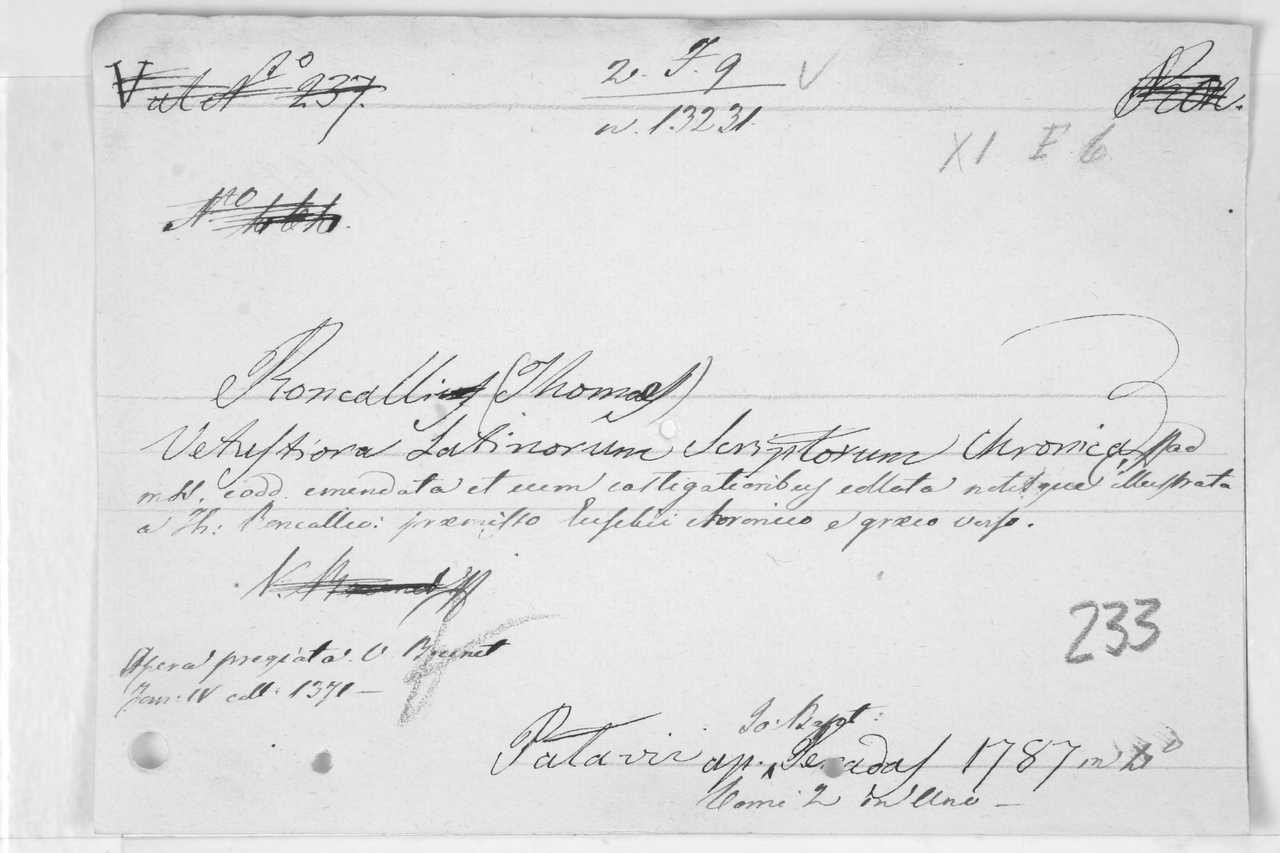 Val N.ro 237.
2. F. 9
n. 13231.
XI F 6
N.to
Roncallius (Thomas)
Vetustiora Latinorum Scriptorum Chronica ad
mss. codd. emendata et cum castigationibus edita notisque illustrata
a Th: Roncallio: præmisso Eusebii chronico e græco verso.
233
Opera pregiata. V Brunet
Tom. IV coll. 1371 —
Jo: Bapt:
Patavii ap. 1787 in
Tomi 2 in Uno —